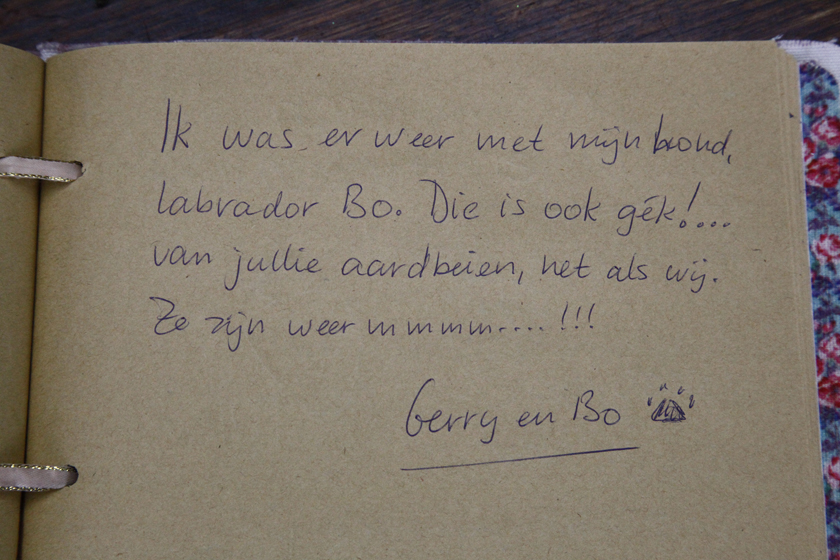 Ik was er weer met mijn hond,
labrador Bo. Die is ook gék!...
van jullie aardbeien, net als wij.
Ze zijn weer mmmm.... !!!
Gerry en Bo